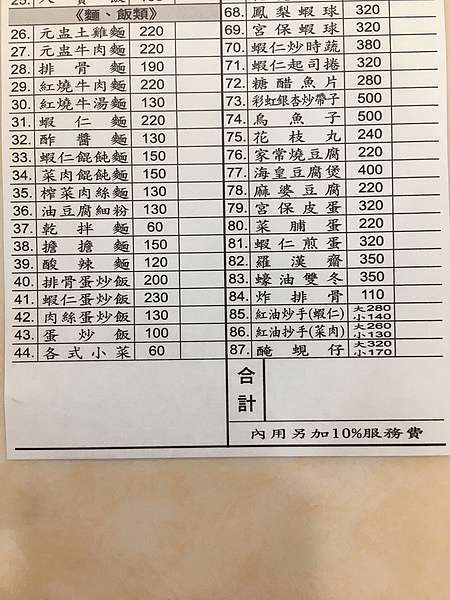 《麵、飯類》
26. 元盅土雞麵 220
27. 元盅牛肉麵 220
28. 排骨麵 190
29. 紅燒牛肉麵 220
30. 紅燒牛湯麵 130
31. 蝦仁麵 220
32. 酢醬麵 130
33. 蝦仁餛飩麵 150
34. 菜肉餛飩麵 150
35. 榨菜肉絲麵 130
36. 油豆腐細粉 130
37. 乾拌麵 60
38. 擔擔麵 150
39. 酸辣麵 120
40. 排骨蛋炒飯 200
41. 蝦仁蛋炒飯 230
42. 肉絲蛋炒飯 130
43. 蛋炒飯 100
44. 各式小菜 60
68. 鳳梨蝦球 320
69. 宮保蝦球 320
70. 蝦仁炒時蔬 380
71. 蝦仁起司捲 320
72. 糖醋魚片 280
73. 彩虹銀杏炒帶子 500
74. 烏魚子 500
75. 花枝丸 240
76. 家常燒豆腐 220
77. 海皇豆腐煲 400
78. 麻婆豆腐 220
79. 宮保皮蛋 320
80. 菜脯蛋 220
81. 蝦仁煎蛋 320
82. 羅漢齋 350
83. 蠔油雙冬 350
84. 炸排骨 110
85. 紅油炒手(蝦仁) 大280 小140
86. 紅油抄手(菜肉) 大260 小130
87. 醃蜆仔 大320 小170
合計
內用另加10%服務費